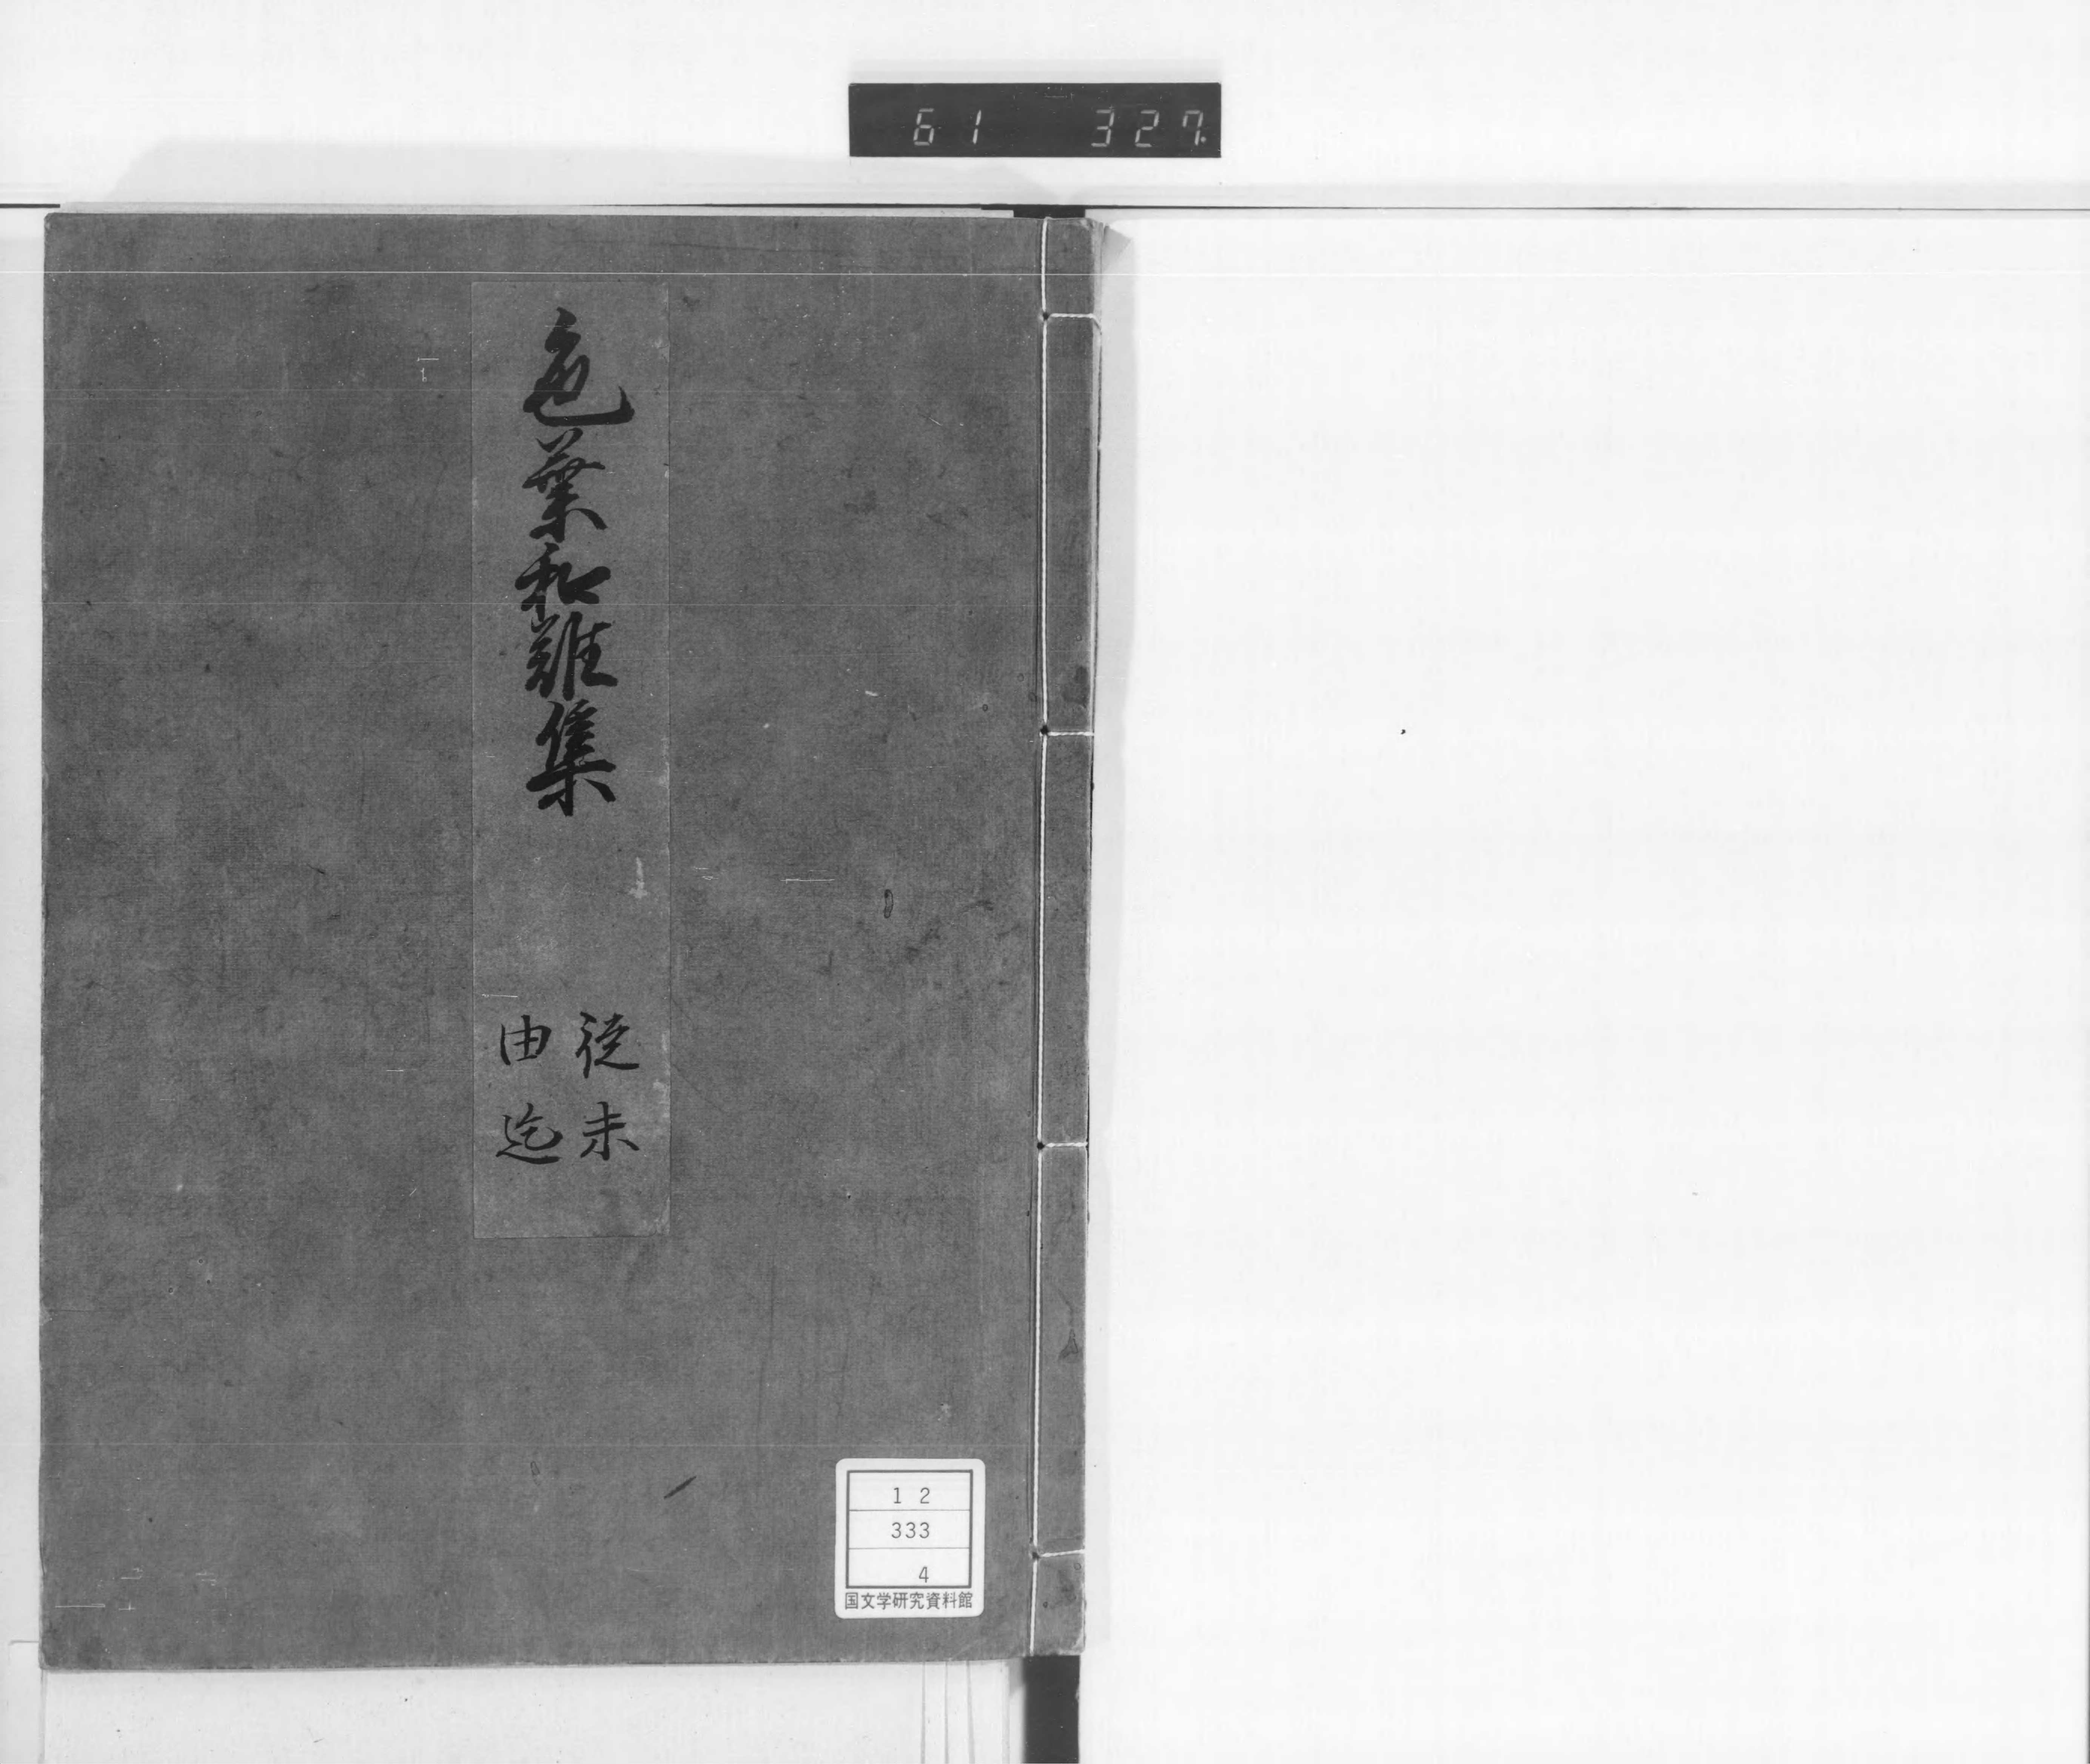 61 327
色葉和難集
従未
由迄
12
333
4
国文学研究資料館